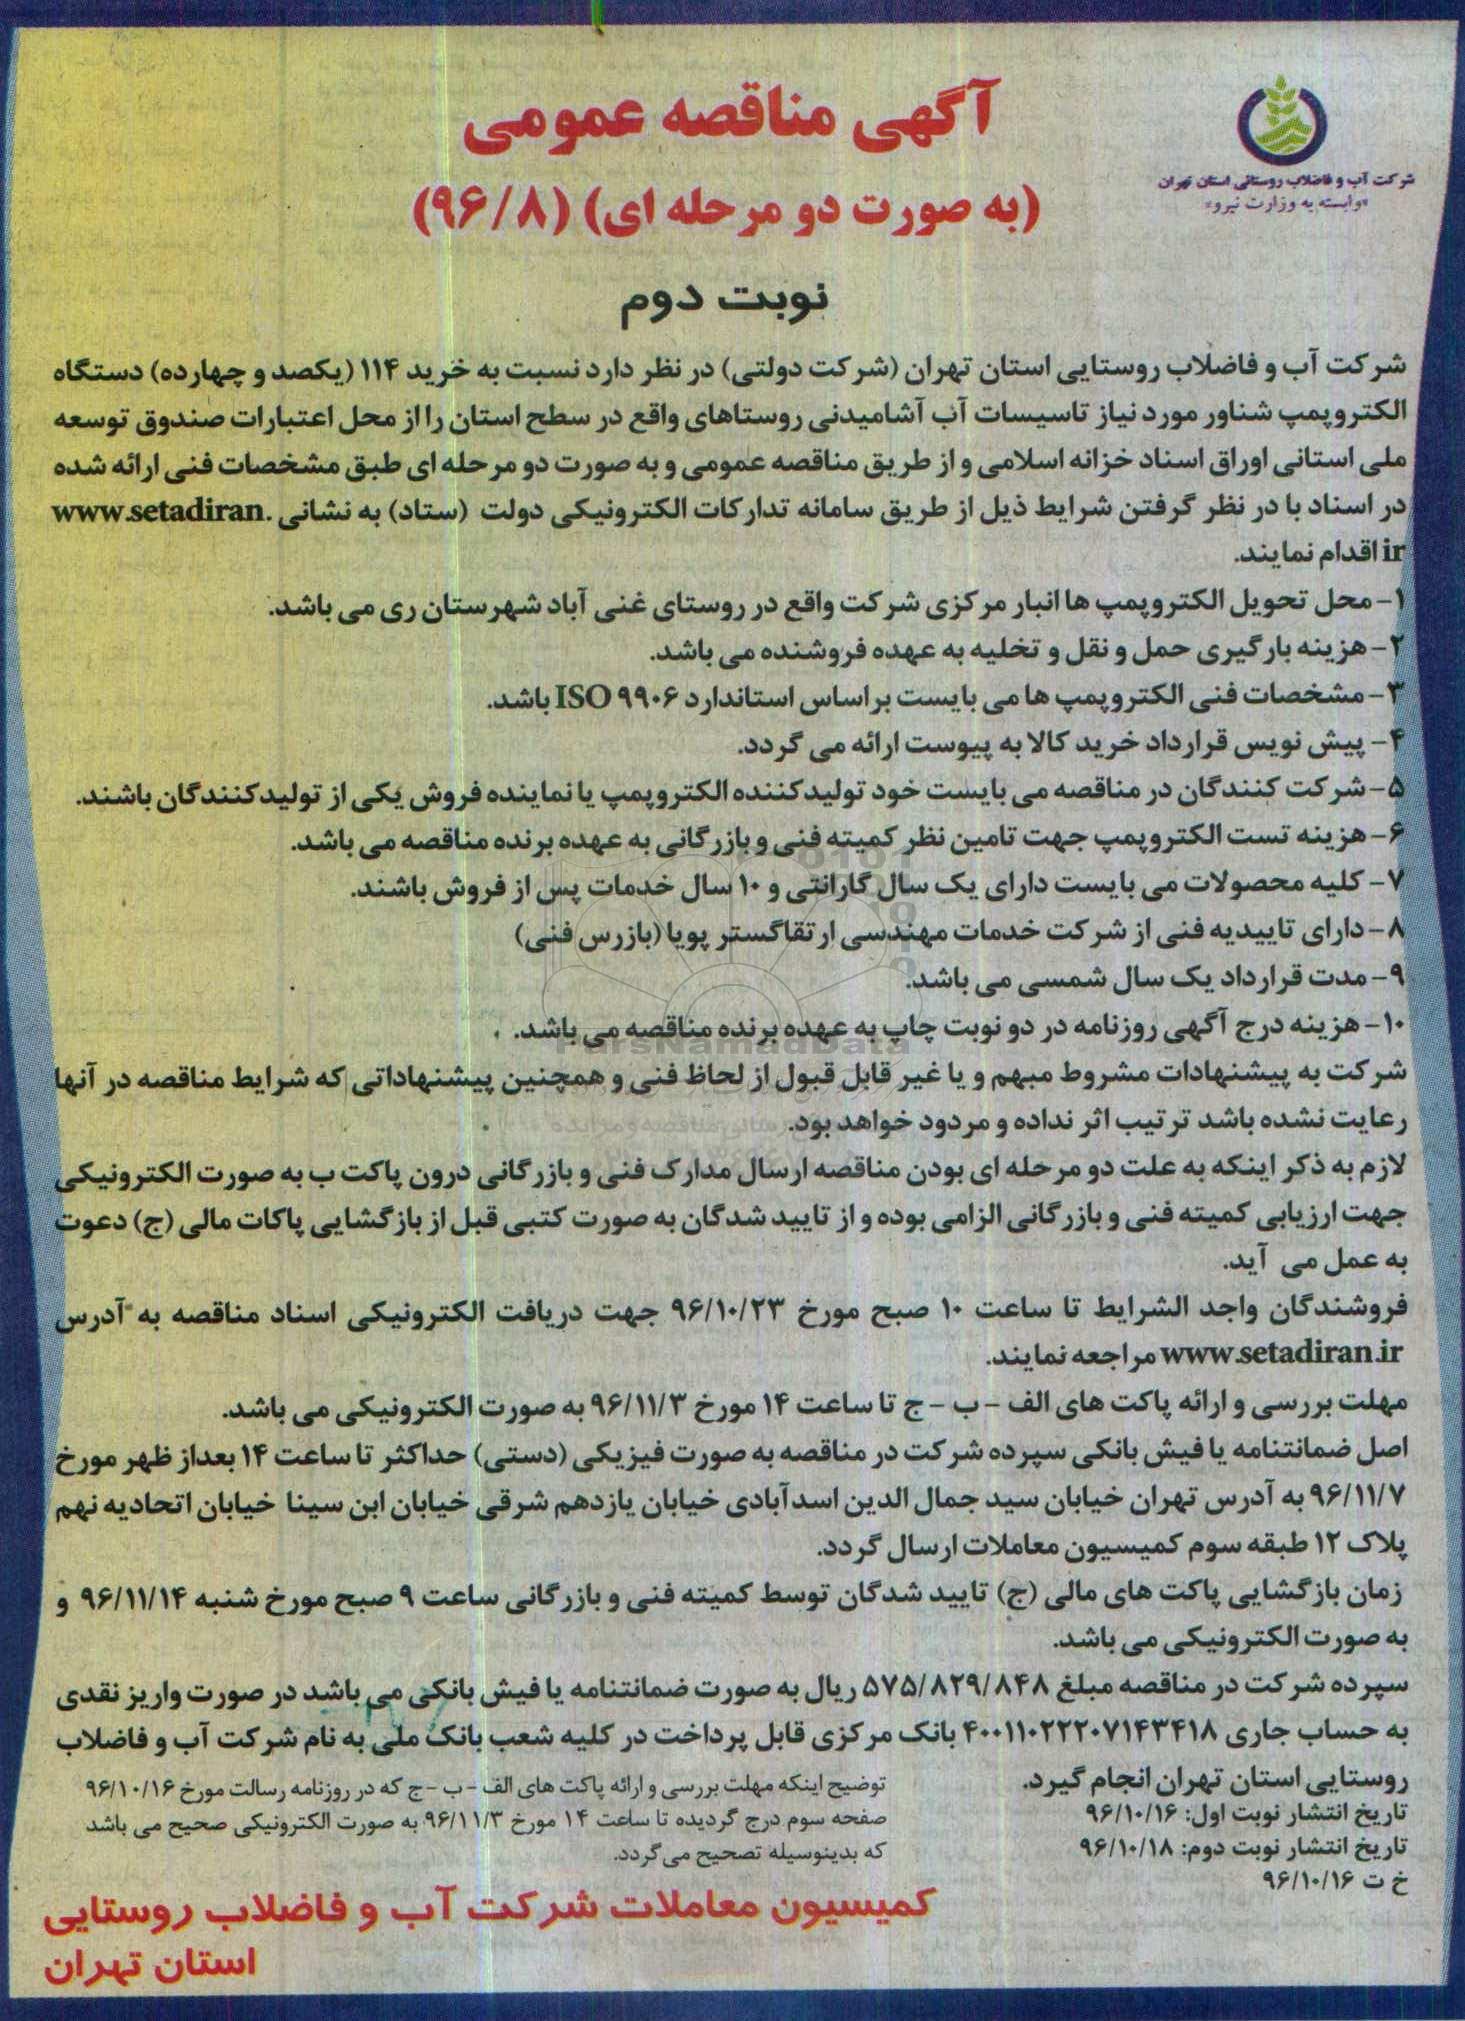 شرکت آب و فاضلاب روستائی استان تهران
«وابسته به وزارت نیرو»
آگهی مناقصه عمومی
(به صورت دو مرحله ای) (۹۶/۸)
نوبت دوم
شرکت آب و فاضلاب روستایی استان تهران (شرکت دولتی) در نظر دارد نسبت به خرید ۱۱۴ (یکصد و چهارده) دستگاه
الکتروپمپ شناور مورد نیاز تاسیسات آب آشامیدنی روستاهای واقع در سطح استان را از محل اعتبارات صندوق توسعه
ملی استانی اوراق اسناد خزانه اسلامی و از طریق مناقصه عمومی و به صورت دو مرحله ای طبق مشخصات فنی ارائه شده
در اسناد با در نظر گرفتن شرایط ذیل از طریق سامانه تدارکات الکترونیکی دولت (ستاد) به نشانی www.setadiran.
ir اقدام نمایند.
۱- محل تحویل الکتروپمپ ها انبار مرکزی شرکت واقع در روستای غنی آباد شهرستان ری می باشد.
۲- هزینه بارگیری حمل و نقل و تخلیه به عهده فروشنده می باشد.
۳- مشخصات فنی الکتروپمپ ها می بایست براساس استاندارد ISO ۹۹۰۶ باشد.
۴- پیش نویس قرارداد خرید کالا به پیوست ارائه می گردد.
۵- شرکت کنندگان در مناقصه می بایست خود تولیدکننده الکتروپمپ یا نماینده فروش یکی از تولیدکنندگان باشند.
۶- هزینه تست الکتروپمپ جهت تامین نظر کمیته فنی و بازرگانی به عهده برنده مناقصه می باشد.
۷- کلیه محصولات می بایست دارای یک سال گارانتی و ۱۰ سال خدمات پس از فروش باشند.
۸- دارای تاییدیه فنی از شرکت خدمات مهندسی ارتقاگستر پویا (بازرس فنی)
۹- مدت قرارداد یک سال شمسی می باشد.
۱۰- هزینه درج آگهی روزنامه در دو نوبت چاپ به عهده برنده مناقصه می باشد.
ParsNamadData
شرکت به پیشنهادات مشروط مبهم و یا غیر قابل قبول از لحاظ فنی و همچنین پیشنهاداتی که شرایط مناقصه در آنها
رعایت نشده باشد ترتیب اثر نداده و مردود خواهد بود.
لازم به ذکر اینکه به علت دو مرحله ای بودن مناقصه ارسال مدارک فنی و بازرگانی درون پاکت ب به صورت الکترونیکی
جهت ارزیابی کمیته فنی و بازرگانی الزامی بوده و از تایید شدگان به صورت کتبی قبل از بازگشایی پاکات مالی (ج) دعوت
به عمل می آید.
فروشندگان واجد الشرایط تا ساعت ۱۰ صبح مورخ ۹۶/۱۰/۲۳ جهت دریافت الکترونیکی اسناد مناقصه به آدرس
www.setadiran.ir مراجعه نمایند.
مهلت بررسی و ارائه پاکت های الف - ب - ج تا ساعت ۱۴ مورخ ۹۶/۱۱/۳ به صورت الکترونیکی می باشد.
اصل ضمانتنامه یا فیش بانکی سپرده شرکت در مناقصه به صورت فیزیکی (دستی) حداکثر تا ساعت ۱۴ بعداز ظهر مورخ
۹۶/۱۱/۷ به آدرس تهران خیابان سید جمال الدین اسدآبادی خیابان یازدهم شرقی خیابان ابن سینا خیابان اتحادیه نهم
پلاک ۱۲ طبقه سوم کمیسیون معاملات ارسال گردد.
زمان بازگشایی پاکت های مالی (ج) تایید شدگان توسط کمیته فنی و بازرگانی ساعت ۹ صبح مورخ شنبه ۹۶/۱۱/۱۴ و
به صورت الکترونیکی می باشد.
سپرده شرکت در مناقصه مبلغ ۵۷۵/۸۲۹/۸۴۸ ریال به صورت ضمانتنامه یا فیش بانکی می باشد در صورت واریز نقدی
به حساب جاری ۴۰۰۱۱۰۲۲۲۰۷۱۴۳۴۱۸ بانک مرکزی قابل پرداخت در کلیه شعب بانک ملی به نام شرکت آب و فاضلاب
روستایی استان تهران انجام گیرد.
تاریخ انتشار نوبت اول: ۹۶/۱۰/۱۶
تاریخ انتشار نوبت دوم: ۹۶/۱۰/۱۸
خ ت ۹۶/۱۰/۱۶
توضیح اینکه مهلت بررسی و ارائه پاکت های الف - ب - ج که در روزنامه رسالت مورخ ۹۶/۱۰/۱۶
صفحه سوم درج گردیده تا ساعت ۱۴ مورخ ۹۶/۱۱/۳ به صورت الکترونیکی صحیح می باشد
که بدینوسیله تصحیح می گردد.
کمیسیون معاملات شرکت آب و فاضلاب روستایی
استان تهران